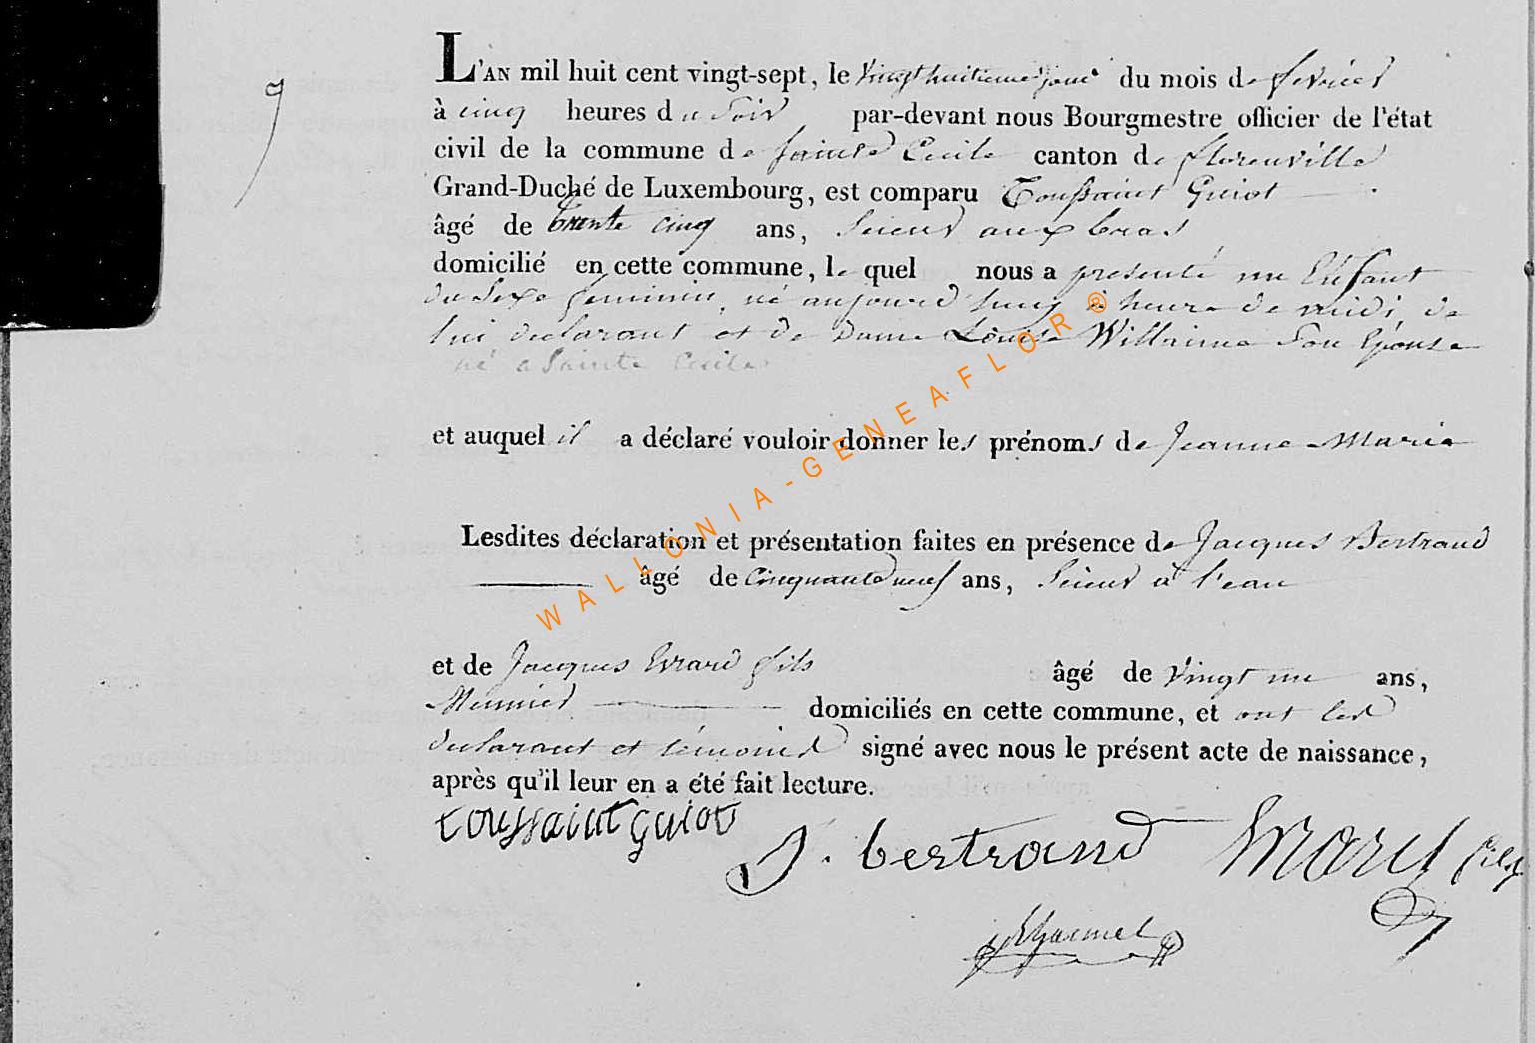 9
L'AN mil huit cent vingt-sept, le vingt huitieme jour du mois de fevrier
à cinq heures du soir par-devant nous Bourgmestre officier de l'état
civil de la commune de Sainte Cecile canton de florenville
Grand-Duché de Luxembourg, est comparu Toussaint Guiot
âgé de trente cinq ans, Scieur aux bras
domicilié en cette commune, le quel nous a presenté un Enfant
du Sexe feminin, né aujourd'huy à heure de midi, de
lui declarant et de Dame Louise Willaime Son Epouse
né a Sainte Cecile
et auquel il a déclaré vouloir donner les prénoms de Jeanne Marie
Lesdites déclaration et présentation faites en présence de Jacques Bertrand
âgé de Cinquante neuf ans, Scieur à l'eau
et de Jacques Evrard fils âgé de vingt un ans,
Meunier domiciliés en cette commune, et ont les
declarant et témoins signé avec nous le présent acte de naissance,
après qu'il leur en a été fait lecture.
toussaint guiot
J. bertrand
fils
WALLONIA-GENEAFLOR®